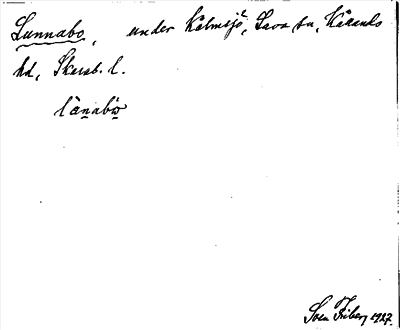 Lunnabo, under Kålmsjö, Sava sn, Kåkinds
hd, Skarab. l.
lànabọ
Sven Friberg 1927.